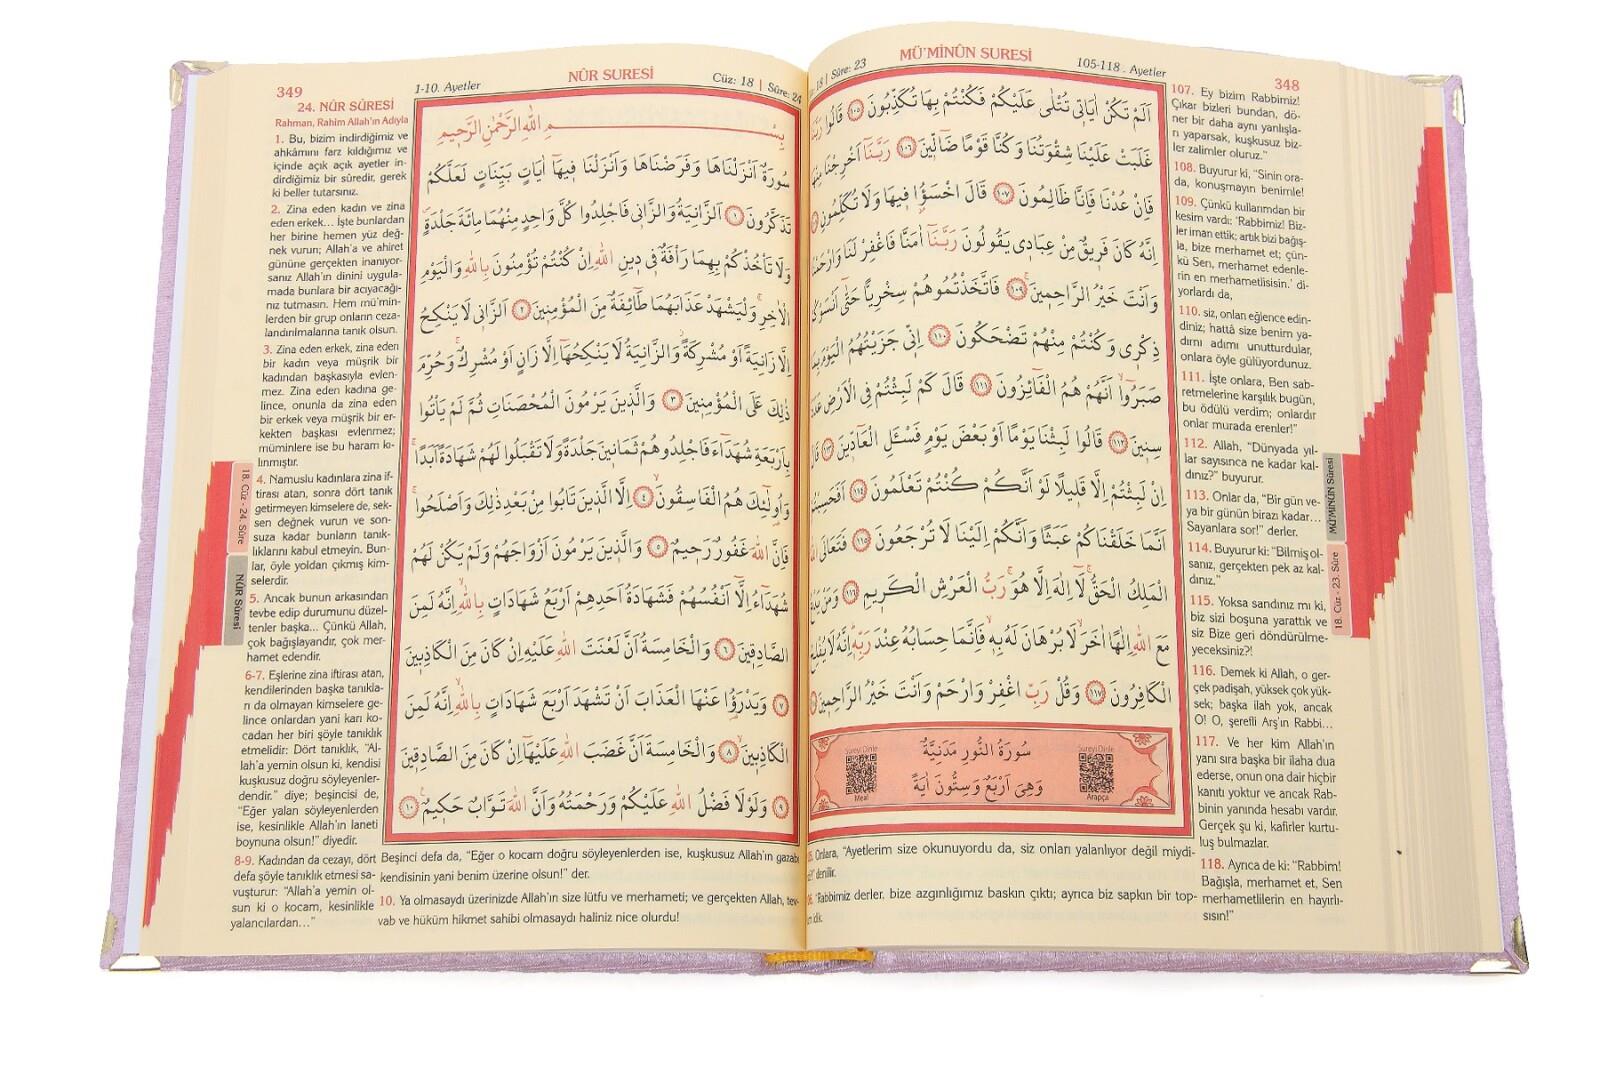 348
MÜ'MİNÛN SURESİ
105-118. Ayetler
18 | Sûre: 23
اَلَمْ تَكُنْ اٰيَات۪ى تُتْلٰى عَلَيْكُمْ فَكُنْتُمْ بِهَا تُكَذِّبُونَ ﴿١٠٥﴾ قَالُوا رَبَّنَا
غَلَبَتْ عَلَيْنَا شِقْوَتُنَا وَكُنَّا قَوْمًا ضَٓالّ۪ينَ ﴿١٠٦﴾ رَبَّنَٓا اَخْرِجْنَا مِنْهَا
فَاِنْ عُدْنَا فَاِنَّا ظَالِمُونَ ﴿١٠٧﴾ قَالَ اخْسَؤُ۫ا ف۪يهَا وَلَا تُكَلِّمُونِ
اِنَّهُ كَانَ فَر۪يقٌ مِنْ عِبَاد۪ى يَقُولُونَ رَبَّنَٓا اٰمَنَّا فَاغْفِرْ لَنَا وَارْحَمْنَا
وَاَنْتَ خَيْرُ الرَّاحِم۪ينَ ﴿١٠٩﴾ فَاتَّخَذْتُمُوهُمْ سِخْرِيًّا حَتّٰٓى اَنْسَوْكُمْ
ذِكْر۪ى وَكُنْتُمْ مِنْهُمْ تَضْحَكُونَ ﴿١١٠﴾ اِنّ۪ى جَزَيْتُهُمُ الْيَوْمَ بِمَا
صَبَرُٓوا اَنَّهُمْ هُمُ الْفَٓائِزُونَ ﴿١١١﴾ قَالَ كَمْ لَبِثْتُمْ فِى الْاَرْضِ عَدَدَ
سِن۪ينَ ﴿١١٢﴾ قَالُوا لَبِثْنَا يَوْمًا اَوْ بَعْضَ يَوْمٍ فَسْـَٔلِ الْعَٓادّ۪ينَ ﴿١١٣﴾ قَالَ
اِنْ لَبِثْتُمْ اِلَّا قَل۪يلًا لَوْ اَنَّكُمْ كُنْتُمْ تَعْلَمُونَ ﴿١١٤﴾ اَفَحَسِبْتُمْ
اَنَّمَا خَلَقْنَاكُمْ عَبَثًا وَاَنَّكُمْ اِلَيْنَا لَا تُرْجَعُونَ ﴿١١٥﴾ فَتَعَالَى اللّٰهُ
الْمَلِكُ الْحَقُّۚ لَٓا اِلٰهَ اِلَّا هُوَۚ رَبُّ الْعَرْشِ الْكَر۪يمِ ﴿١١٦﴾ وَمَنْ يَدْعُ
مَعَ اللّٰهِ اِلٰهًا اٰخَرَۙ لَا بُرْهَانَ لَهُ بِه۪ۙ فَاِنَّمَا حِسَابُهُ عِنْدَ رَبِّه۪ۜ اِنَّهُ لَا يُفْلِحُ
الْكَافِرُونَ ﴿١١٧﴾ وَقُلْ رَبِّ اغْفِرْ وَارْحَمْ وَاَنْتَ خَيْرُ الرَّاحِم۪ينَ
سُورَةُ النُّورِ مَدَنِيَّةٌ
وَهِىَ اَرْبَعٌ وَسِتُّونَ اٰيَةً
Sureyi Dinle
Meal
Sureyi Dinle
Arapça
Onlara, “Ayetlerim size okunuyordu da, siz onları yalanlıyor değil miydi-
denilir.
“Rabbimiz derler, bize azgınlığımız baskın çıktı; ayrıca biz sapkın bir top-
idik.
107. Ey bizim Rabbimiz!
Çıkar bizleri bundan, dö-
ner bir daha aynı yanlışla-
rı yaparsak, kuşkusuz biz-
ler zalimler oluruz.”
108. Buyurur ki, “Sinin ora-
da, konuşmayın benimle!
109. Çünkü kullarımdan bir
kesim vardı: ‘Rabbimiz! Biz-
ler iman ettik; artık bizi bağış-
la, bize merhamet et; çün-
kü Sen, merhamet edenle-
rin en merhametlisisin.’ di-
yorlardı da,
110. siz, onları eğlence edin-
diniz; hattâ size benim ya-
dımı adımı unutturdular,
onlara öyle gülüyordunuz.
111. İşte onlara, Ben sab-
retmelerine karşılık bugün,
bu ödülü verdim; onlardır
onlar murada erenler!”
112. Allah, “Dünyada yıl-
lar sayısınca ne kadar kal-
dınız?” buyurur.
113. Onlar da, “Bir gün ve-
ya bir günün birazı kadar...
Sayanlara sor!” derler.
114. Buyurur ki: “Bilmiş ol-
sanız, gerçekten pek az kal-
dınız.”
115. Yoksa sandınız mı ki,
biz sizi boşuna yarattık ve
siz Bize geri döndürülme-
yeceksiniz?!
116. Demek ki Allah, o ger-
çek padişah, yüksek çok yük-
sek; başka ilah yok, ancak
O! O, şerefli Arş'ın Rabbi...
117. Ve her kim Allah'ın
yanı sıra başka bir ilaha dua
ederse, onun ona dair hiçbir
kanıtı yoktur ve ancak Rab-
binin yanında hesabı vardır.
Gerçek şu ki, kafirler kurtu-
luş bulmazlar.
118. Ayrıca de ki: “Rabbim!
Bağışla, merhamet et, Sen
merhametlilerin en hayırlı-
sısın!”
MÜ'MİNÛN Sûresi
18. Cüz - 23. Sûre
349
1-10. Ayetler
NÛR SURESİ
Cüz: 18 | Sûre: 24
بِسْمِ اللّٰهِ الرَّحْمٰنِ الرَّح۪يمِ
سُورَةٌ اَنْزَلْنَاهَا وَفَرَضْنَاهَا وَاَنْزَلْنَا ف۪يهَٓا اٰيَاتٍ بَيِّنَاتٍ لَعَلَّكُمْ
تَذَكَّرُونَ ﴿١﴾ اَلزَّانِيَةُ وَالزَّان۪ى فَاجْلِدُوا كُلَّ وَاحِدٍ مِنْهُمَا مِائَةَ جَلْدَةٍۖ
وَلَا تَأْخُذْكُمْ بِهِمَا رَأْفَةٌ ف۪ى د۪ينِ اللّٰهِ اِنْ كُنْتُمْ تُؤْمِنُونَ بِاللّٰهِ وَالْيَوْمِ
الْاٰخِرِۚ وَلْيَشْهَدْ عَذَابَهُمَا طَٓائِفَةٌ مِنَ الْمُؤْمِن۪ينَ ﴿٢﴾ اَلزَّان۪ى لَا يَنْكِحُ
اِلَّا زَانِيَةً اَوْ مُشْرِكَةًۘ وَالزَّانِيَةُ لَا يَنْكِحُهَٓا اِلَّا زَانٍ اَوْ مُشْرِكٌۚ وَحُرِّمَ
ذٰلِكَ عَلَى الْمُؤْمِن۪ينَ ﴿٣﴾ وَالَّذ۪ينَ يَرْمُونَ الْمُحْصَنَاتِ ثُمَّ لَمْ يَأْتُوا
بِاَرْبَعَةِ شُهَدَٓاءَ فَاجْلِدُوهُمْ ثَمَان۪ينَ جَلْدَةً وَلَا تَقْبَلُوا لَهُمْ شَهَادَةً اَبَدًاۚ
وَاُو۬لٰٓئِكَ هُمُ الْفَاسِقُونَۙ ﴿٤﴾ اِلَّا الَّذ۪ينَ تَابُوا مِنْ بَعْدِ ذٰلِكَ وَاَصْلَحُواۚ
فَاِنَّ اللّٰهَ غَفُورٌ رَح۪يمٌ ﴿٥﴾ وَالَّذ۪ينَ يَرْمُونَ اَزْوَاجَهُمْ وَلَمْ يَكُنْ لَهُمْ
شُهَدَٓاءُ اِلَّٓا اَنْفُسُهُمْ فَشَهَادَةُ اَحَدِهِمْ اَرْبَعُ شَهَادَاتٍ بِاللّٰهِۙ اِنَّهُ لَمِنَ
الصَّادِق۪ينَ ﴿٦﴾ وَالْخَامِسَةُ اَنَّ لَعْنَتَ اللّٰهِ عَلَيْهِ اِنْ كَانَ مِنَ الْكَاذِب۪ينَ
﴿٧﴾ وَيَدْرَؤُ۬ا عَنْهَا الْعَذَابَ اَنْ تَشْهَدَ اَرْبَعَ شَهَادَاتٍ بِاللّٰهِۙ اِنَّهُ لَمِنَ
الْكَاذِب۪ينَ ﴿٨﴾ وَالْخَامِسَةَ اَنَّ غَضَبَ اللّٰهِ عَلَيْهَٓا اِنْ كَانَ مِنَ الصَّادِق۪ينَ
﴿٩﴾ وَلَوْلَا فَضْلُ اللّٰهِ عَلَيْكُمْ وَرَحْمَتُهُ وَاَنَّ اللّٰهَ تَوَّابٌ حَك۪يمٌ ﴿١٠﴾
24. NÛR SÛRESİ
Rahman, Rahim Allah'ın Adıyla
1. Bu, bizim indirdiğimiz ve
ahkâmını farz kıldığımız ve
içinde açık açık ayetler in-
dirdiğimiz bir sûredir, gerek
ki beller tutarsınız.
2. Zina eden kadın ve zina
eden erkek... İşte bunlardan
her birine hemen yüz değ-
nek vurun; Allah'a ve ahiret
gününe gerçekten inanıyor-
sanız Allah'ın dinini uygula-
mada bunlara bir acıyacağı-
nız tutmasın. Hem mü'min-
lerden bir grup onların ceza-
landırılmalarına tanık olsun.
3. Zina eden erkek, zina eden
bir kadın veya müşrik bir
kadından başkasıyla evlen-
mez. Zina eden kadına ge-
lince, onunla da zina eden
bir erkek veya müşrik bir er-
kekten başkası evlenmez;
müminlere ise bu haram kı-
lınmıştır.
4. Namuslu kadınlara zina if-
tirası atan, sonra dört tanık
getirmeyen kimselere de, sek-
sen değnek vurun ve son-
suza kadar bunların tanık-
lıklarını kabul etmeyin. Bun-
lar, öyle yoldan çıkmış kim-
selerdir.
5. Ancak bunun arkasından
tevbe edip durumunu düzel-
tenler başka... Çünkü Allah,
çok bağışlayandır, çok mer-
hamet edendir.
6-7. Eşlerine zina iftirası atan,
kendilerinden başka tanıkla-
rı da olmayan kimselere ge-
lince onlardan yani karı ko-
cadan her biri şöyle tanıklık
etmelidir: Dört tanıklık, “Al-
lah'a yemin olsun ki, kendisi
kuşkusuz doğru söyleyenler-
dendir.” diye; beşincisi de,
“Eğer yalan söyleyenlerden
ise, kesinlikle Allah'ın laneti
boynuna olsun!” diyedir.
8-9. Kadından da cezayı, dört
defa şöyle tanıklık etmesi sa-
vuşturur: “Allah'a yemin ol-
sun ki o kocam, kesinlikle
yalancılardan...”
Beşinci defa da, “Eğer o kocam doğru söyleyenlerden ise, kuşkusuz Allah'ın gazabı
kendisinin yani benim üzerine olsun!” der.
10. Ya olmasaydı üzerinizde Allah'ın size lütfu ve merhameti; ve gerçekten Allah, tev-
vab ve hüküm hikmet sahibi olmasaydı haliniz nice olurdu!
18. Cüz - 24. Sûre
NÛR Sûresi